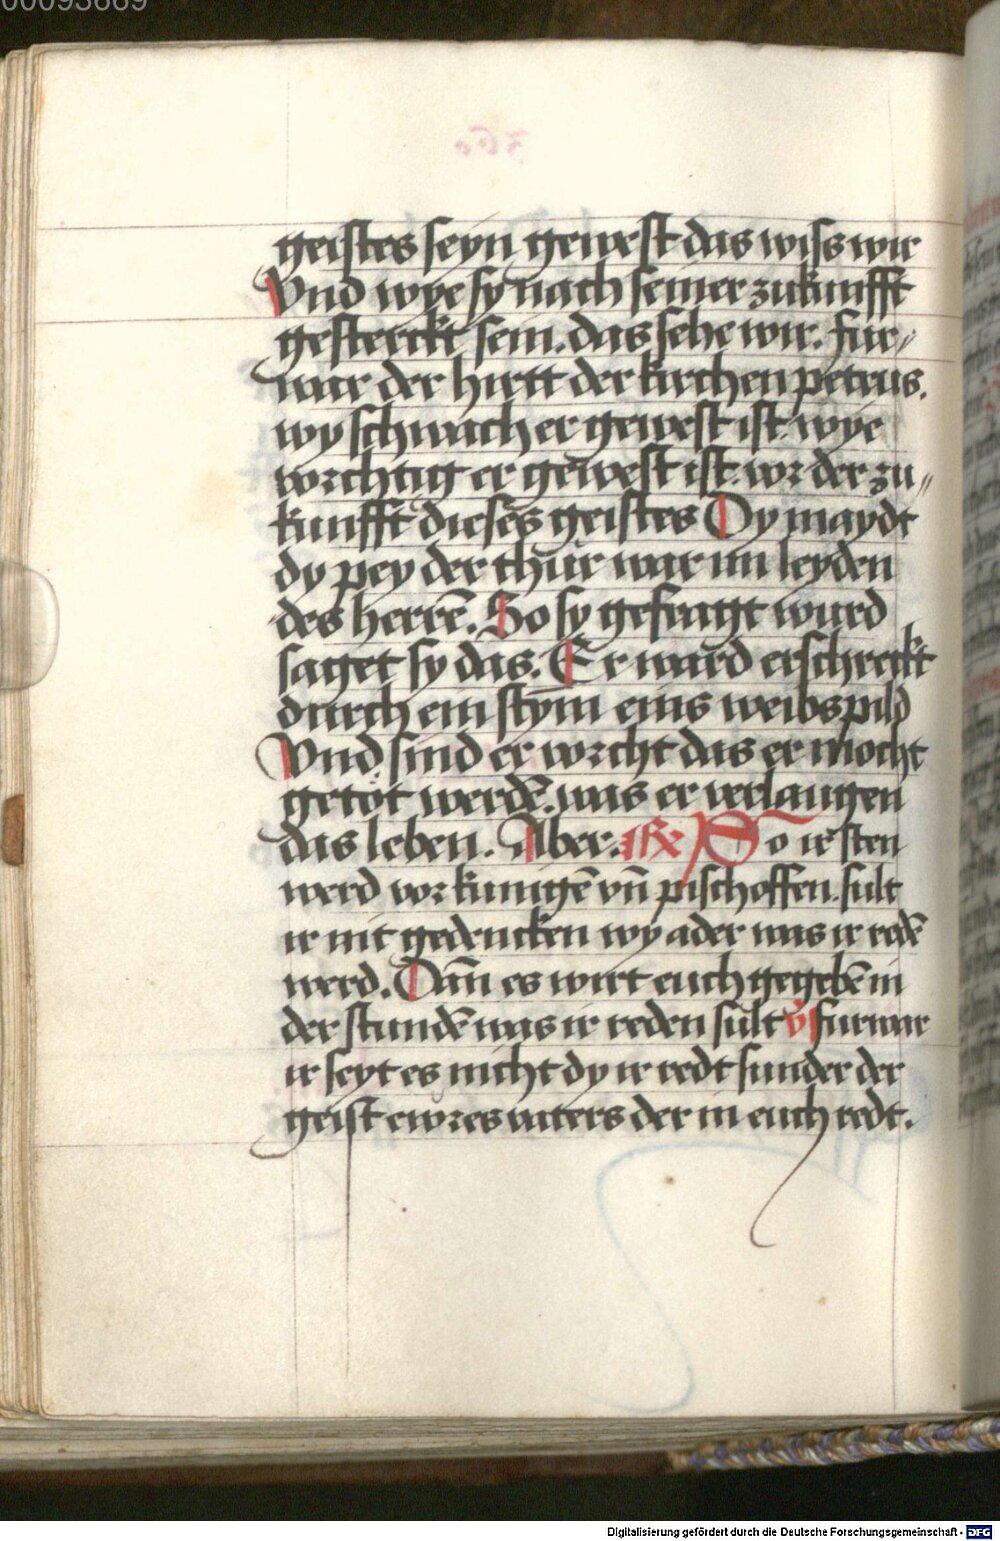 00093689
geistes seyn gewest das wiss wir
Vnd wye sy nach seiner zukunfft
gesterckt sein. das sehe wir. fur⸗
war der hirtt der kirchen petrus.
wy schwach er gewest ist. wye
vorchtig er gewest ist. vor der zu⸗
kunfft dieses geistes Dy maydt
dy pey der thur war im leyden
des herrē. So sy gefragt wurd
saget sy das. Er ward erschreckt
durch ein stym eins weibspild
Vnd sind er vorcht das er mocht
getöt werdē. was er verlaugen
das leben. Aber. R So ir sten
werd vor kunigē vn̄ pischoffen. sult
ir nit gedencken wy ader was ir redē
werd. Dan̄ es wirt euch gegebē in
der stundē was ir reden sult v furwar
ir seyt es nicht dy ir redt sunder der
geist ewres vaters der in euch redt.
Digitalisierung gefördert durch die Deutsche Forschungsgemeinschaft - DFG